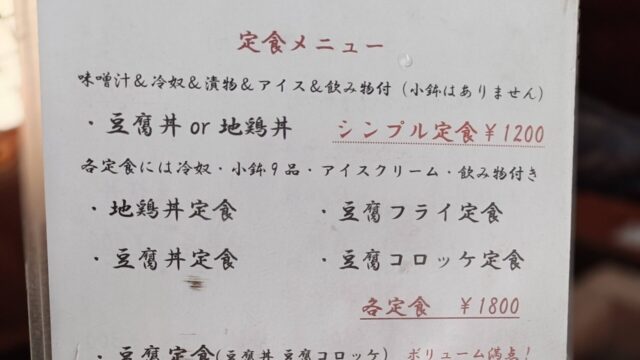 定食メニュー
味噌汁&冷奴&漬物&アイス&飲み物付(小鉢はありません)
・豆腐丼 or 地鶏丼 シンプル定食¥1200
各定食には冷奴・小鉢9品・アイスクリーム・飲み物付き
・地鶏丼定食 ・豆腐フライ定食
・豆腐丼定食 ・豆腐コロッケ定食
各定食 ¥1800
・豆腐定食(豆腐丼 豆腐コロッケ) ボリューム満点!